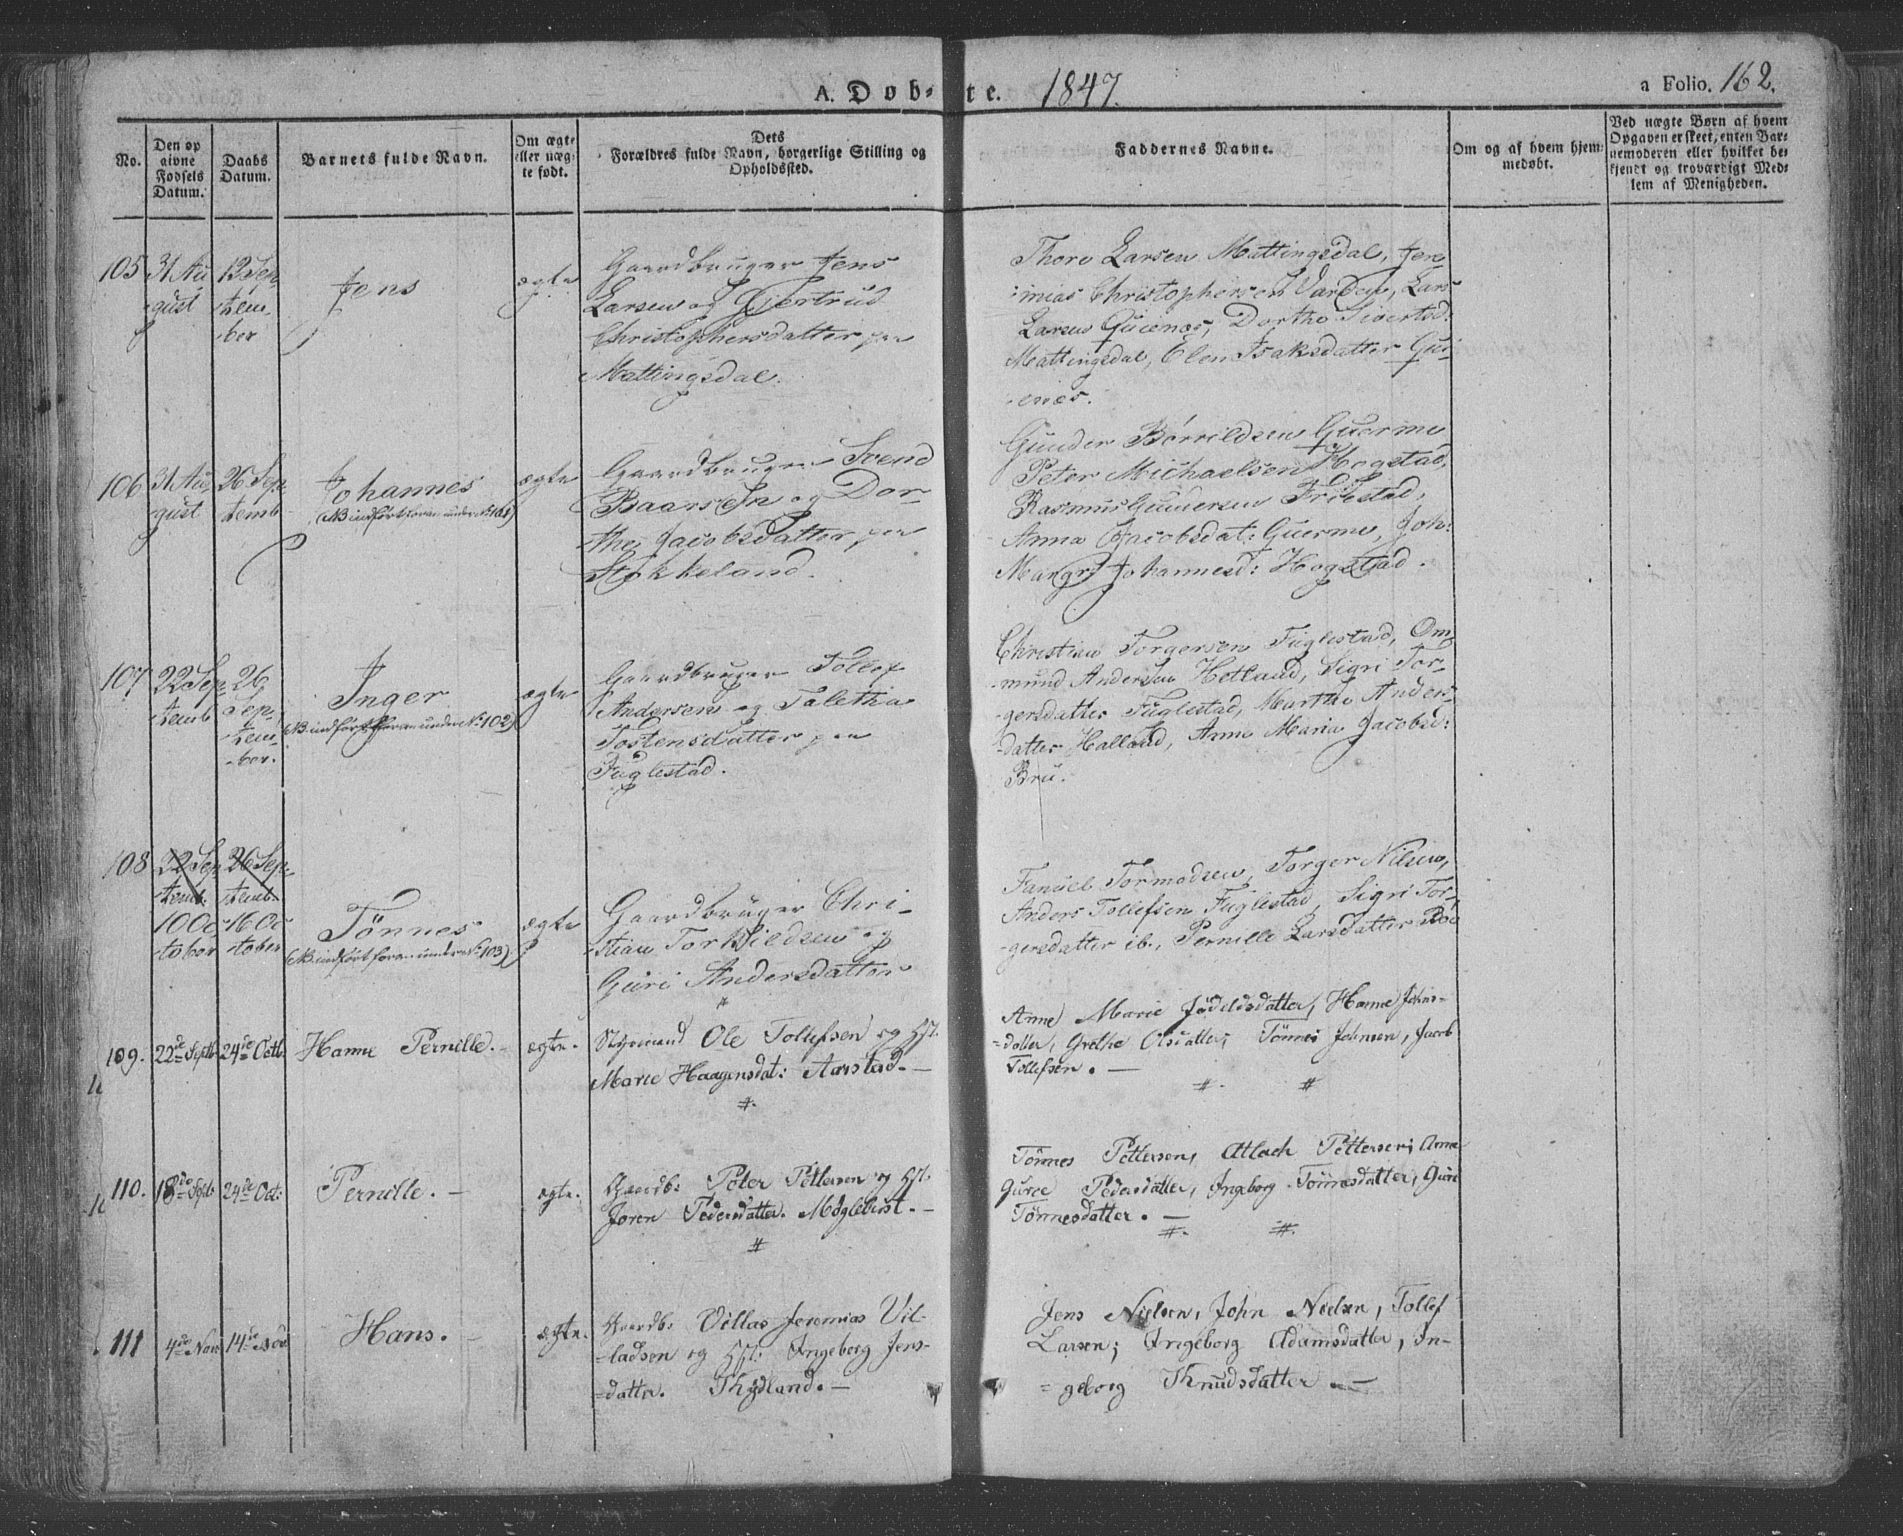 A. Dobte. 1847. a Folio. 162.
No.
Den op
givne
Fødsels
Datum.
Daabs
Datum.
Barnets fulde Navn.
Om ægte
eller uæg-
te født.
Dets
Forældres fulde Navn, borgerlige Stilling og
Opholdssted.
Faddernes Navne.
Om og af hvem hjem-
medøbt.
Ved uægte Børn af hvem
Opgaven er skeet, enten Bar-
nemoderen eller hvilket be-
kjendt og troværdigt Med-
lem af Menigheden.
105
31 Au
gust
12 Sep
tem
ber
Jens
ægte
Gaardbruger Jens
Larsen og Gjertrud
Christophersdatter paa
Mattingsdal.
Thore Larsen Mattingsdal, Jere
mias Christophersen Varden, Lars
Larsen Qvienæs, Dorthe Sivertsd:
Mattingsdal, Elen Isaksdatter Qvi
enæs.
106
31 Au
gust
26 Sep
temb
Johannes
(NB indført foran under No 101)
ægte
Gaardbruger Svend
Baarsen og Dor-
the Jacobsdatter paa
Stokkeland.
Gunder Børrildsen
Peter Michaelsen Hogstad,
Rasmus Gundersen
Anna Jacobsdat: Joh:
Mangr Johannesd: Hogstad.
107
22 Sep
temb
26
Sep-
tem-
ber.
Inger
(NB indført foran under No 102)
ægte
Gaardbruger Tollef
Andersen og Taletha
Tostensdatter paa
Fuglestad.
Christian Torgersen Fuglestad, Om
mund Andersen Hetland, Sigri Tor-
gersdatter Fuglestad, Marthe Anders
datter Halland, Anne Maria Jacobsd:
Bru.
108
22 Sep
temb.
26 Sep
temb.
10 Oc
tober
16 Oc
tober
Tönnes
(NB indført foran under No 103)
ægte
Gaardbrüger Chri-
stian Torkildsen og
Guri Andersdatter
Tormodsen, Torger Nilsen,
Anders Tollefsen Fuglestad, Sigri Tor-
gersdatter ib., Pernille Larsdatter
109.
22de Septb
24de Octb.
Hanne Pernille. -
ægte.
Styrmand Ole Tollefsen og Hst.
Marie Haagensdat: Aarstad. -
#.
Anne Marie Jødildsdatter, Hanne Johns-
=datter, Grethe Olsdatter; Tönnes Johnsen, Jacob
Tollefsen. -
#. #
110.
18de Septb
24de Oct:
Pernille. -
ægte.
Gaardb: Peter Pettersen og Hst.
Joren Pedersdatter. Møglebust. -
#
Tönnes Pettersen, Atlach Pettersen; Anne
Gurie Pedersdatter, Ingeborg Tönnesdatter, Guri
Tönnesdatter. -
#. #.
111
4de Nov
14de Nov
Hans. -
ægte.
Gaardb: Villas Jeremias Vil-
=ladsen og Hst: Ingeborg Jens-
=datter. Thydland. -
Jens Nielsen, John Nielsen, Tollef
Larsen; Ingeborg Adamsdatter, In-
=geborg Knudsdatter. -